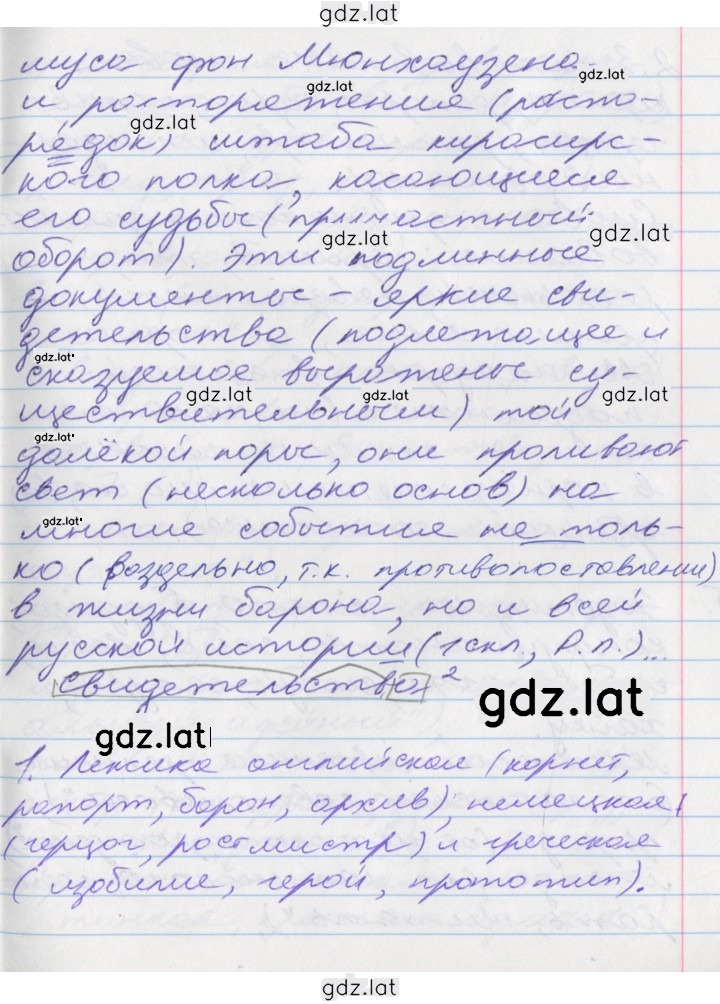 gdz.lat
муса фон Мюнхаузена
gdz.lat
и распоряжения (распо-
gdz.lat
рядок) штаба кирасирс-
кого полка, касающиеся
его судьбы (причастный
gdz.lat
gdz.lat
оборот). Эти подлинные
документы – яркие сви-
детельства (подлежащее и
gdz.lat
сказуемое выражены су-
gdz.lat
gdz.lat
ществительными) той
gdz.lat
далёкой поры, они проливают
свет (несколько основ) на
gdz.lat
многие события не толь-
ко (раздельно, т.к. противопоставлении)
в жизни барона, но и всей
русской истории (1 скл., Р.п.)...
свидетельства²
gdz.lat
gdz.lat
1. Лексика английская (корнет,
рапорт, барон, архив), немецкая
(герцог, ростмистр) и греческая
(изобилие, герой, прототип).
gdz.lat